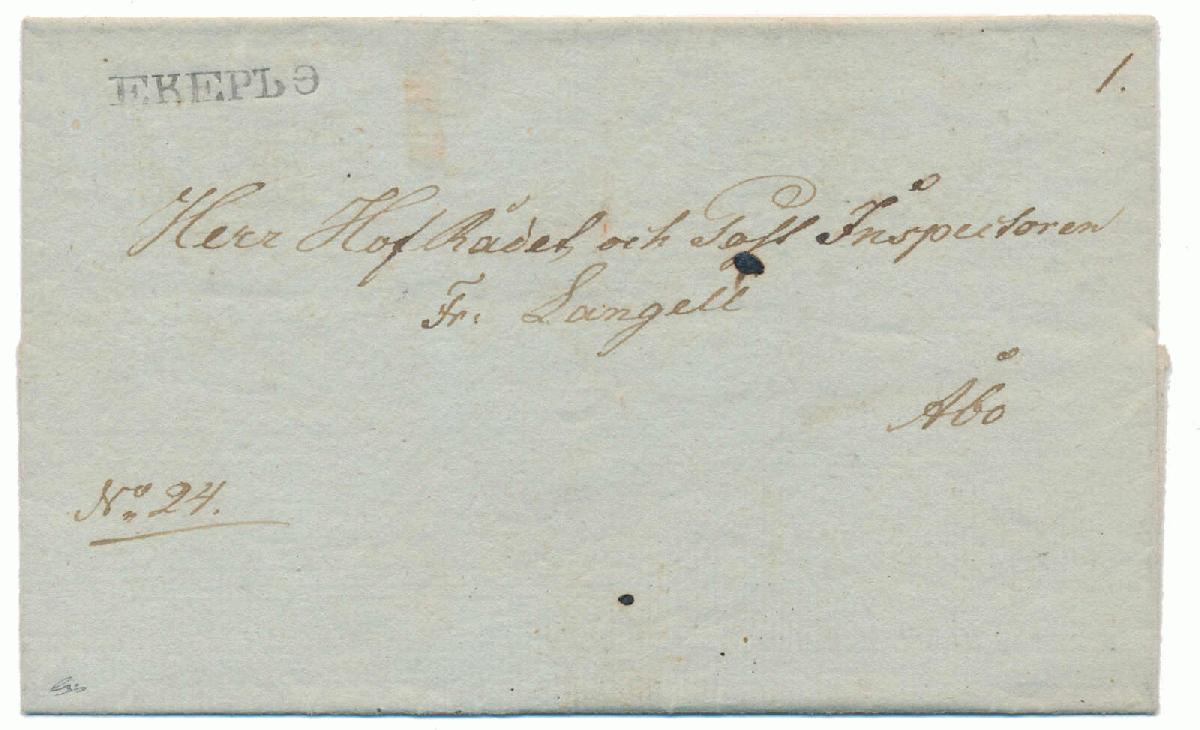 ЕКЕРЬЭ
1.
Herr HofRådet och Post Inspectoren
Fr. Langell
Åbo
No 24.